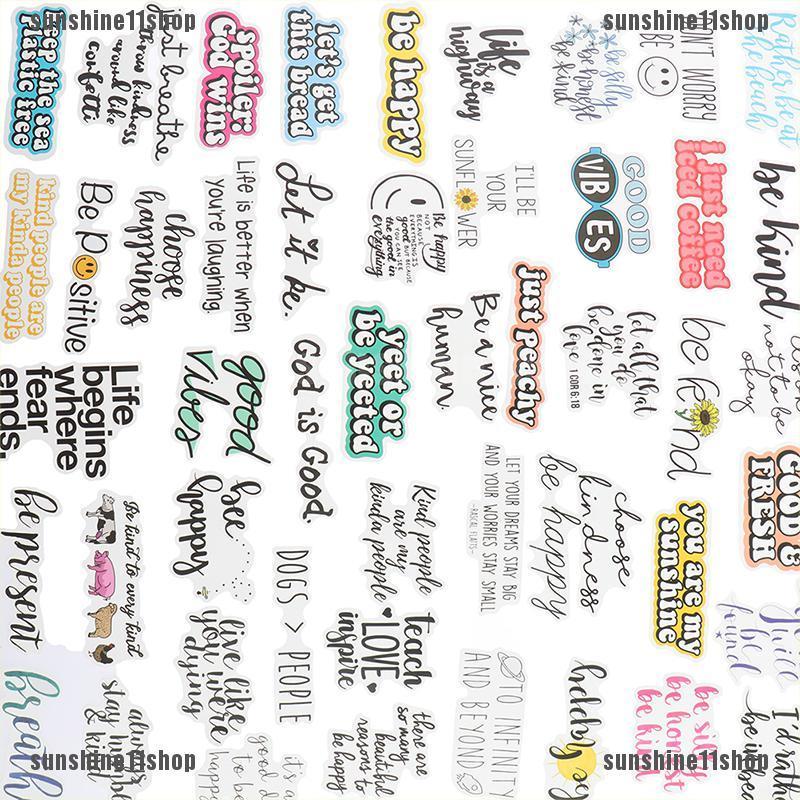 sunshine11shop
sunshine11shop
keep the sea
plastic free
throw kindness
around like
confetti
just breathe
spoiler:
God wins
let's get
this bread
be happy
life
is a
highway
be silly
be honest
be kind
DON'T WORRY
BE
Rather be at
the beach
kind people are
my kinda people
Be Positive
choose
happiness
Life is better when
you're laughing.
Let it be.
Be happy
NOT
BECAUSE
EVERYTHING IS
good BUT BECAUSE
YOU CAN SEE
the good in
everything
I'LL BE
YOUR
SUNFLOWER
GOOD
VIBES
i just need
iced coffee
be kind
it's ok
not to be
okay
Life
begins
where
fear
ends.
good
vibes
God is Good.
yeet or
be yeeted
Be a nice
human.
just peachy
let all that
you do
be done in
love 1 COR 16:18
be kind
GOOD &
FRESH
be present
Be kind to every kind
bee
happy
DOGS > PEOPLE
Kind people
are my
kinda people
LET YOUR DREAMS STAY BIG
AND YOUR WORRIES STAY SMALL
-RASCAL FLATTS-
choose
kindness
be happy
you are my
sunshine
be
found
breathe
always
stay humble
& kind
live like
you were
dying
it's a
good day
to be
happy
teach
LOVE
inspire
there are
so many
beautiful
reasons to
be happy
TO INFINITY
AND BEYOND
be happy
be silly
be honest
be kind
I'd rather
be in bed
sunshine11shop
sunshine11shop